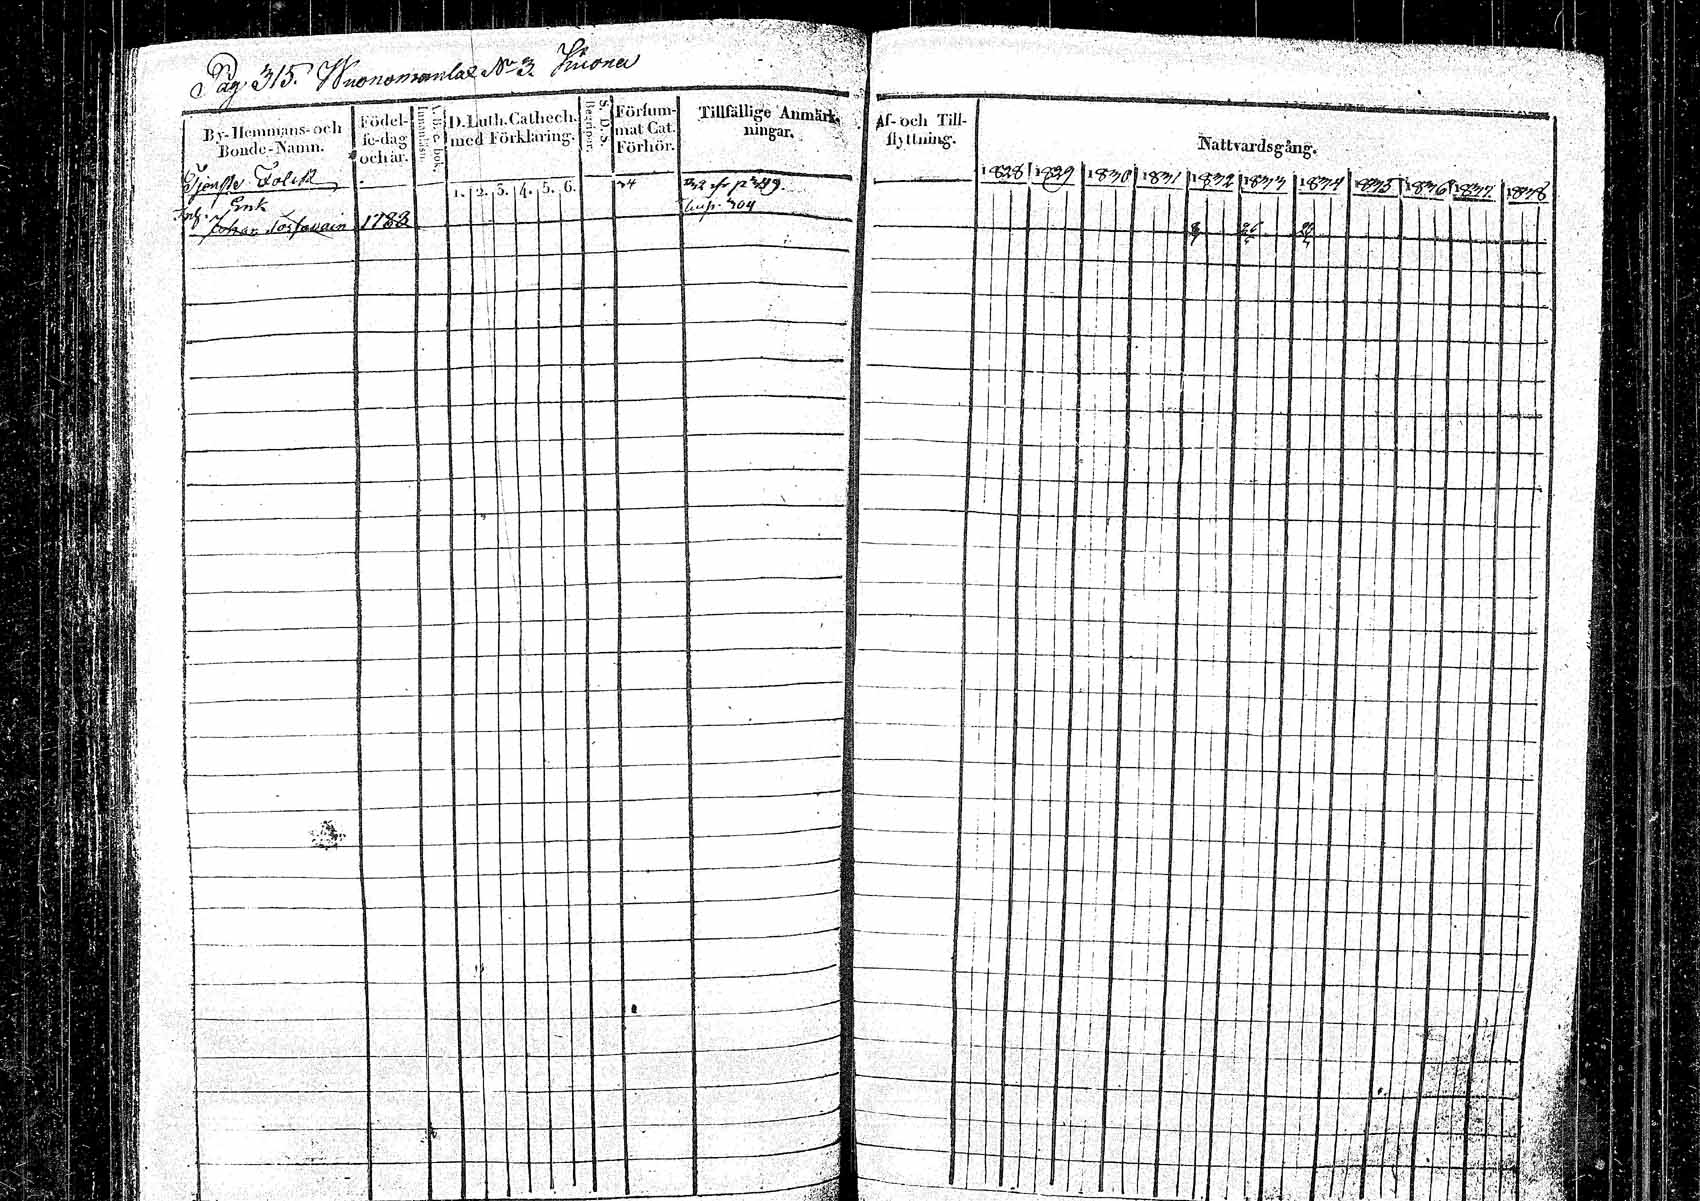 Pag. 315. Wuonomanlax No 3. Kuona
By-Hemmans- och Bonde-Namn.
Födelse-dag och år.
A.B.C. bok. Innanläsn.
D. Luth. Cathech. med Förklaring.
1. 2. 3. 4. 5. 6.
S.D.S. Begripor.
Försummat Cat. Förhör.
Tillfällige Anmärkningar.
Af- och Tillflyttning.
Nattvardsgång.
1828 1829 1830 1831 1832 1833 1834 1835 1836 1837 1838
Tjenste Folck
34
32 fr p 349.
Enk
Inh. Johan 1783